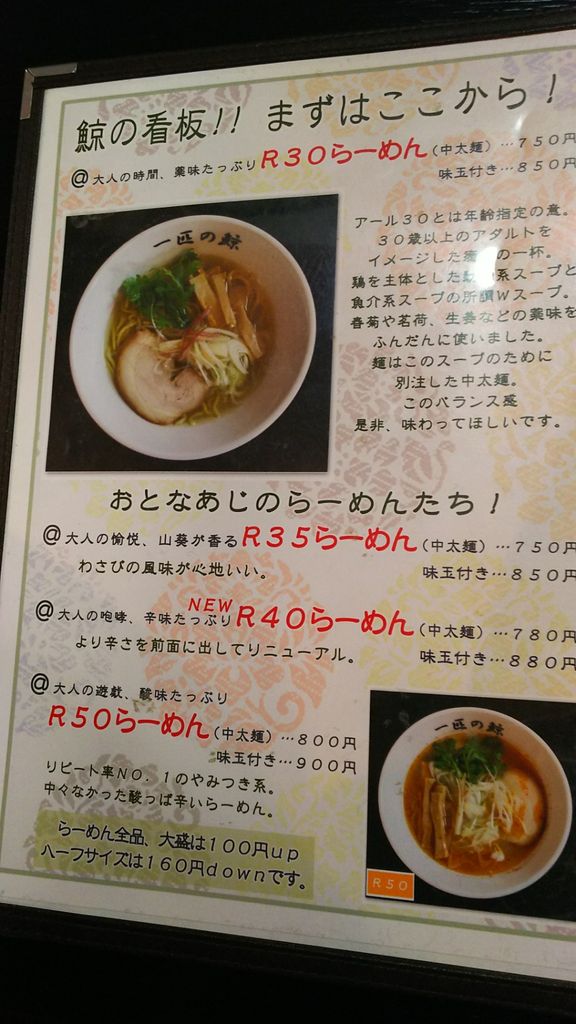 鯨の看板!! まずはここから!
@大人の時間、薬味たっぷりR30らーめん(中太麺)…750円
味玉付き…850円
一匹の鯨
アール30とは年齢指定の意。
30歳以上のアダルトを
イメージした の一杯。
鶏を主体とした 系スープと
魚介系スープの所謂Wスープ。
春菊や茗荷、生姜などの薬味を
ふんだんに使いました。
麺はこのスープのために
別注した中太麺。
このバランス感
是非、味わってほしいです。
おとなあじのらーめんたち!
@大人の愉悦、山葵が香るR35らーめん(中太麺)…750円
わさびの風味が心地いい。
味玉付き…850円
NEW
@大人の咆哮、辛味たっぷりR40らーめん(中太麺)…780円
より辛さを前面に出してリニューアル。
味玉付き…880円
@大人の遊戯、酸味たっぷり
R50らーめん(中太麺)…800円
味玉付き…900円
リピート率NO.1のやみつき系。
中々なかった酸っぱ辛いらーめん。
らーめん全品、大盛は100円up
ハーフサイズは160円downです。
一匹の鯨
R50